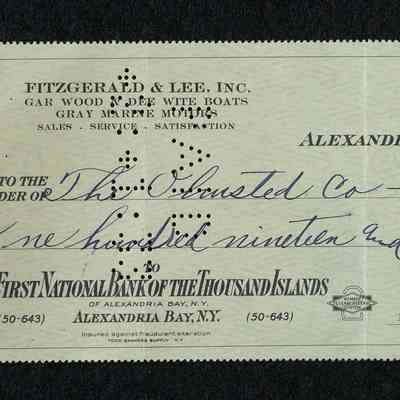 FITZGERALD & LEE, INC.
GAR WOOD N DEE WITE BOATS
GRAY MARINE MOTORS
SALES - SERVICE - SATISFACTION
ALEXANDRI
TO THE
DER OF The Olmsted Co —
One hundred nineteen and
TO
FIRST NATIONAL BANK OF THE THOUSAND ISLANDS
OF ALEXANDRIA BAY, N.Y.
(50-643) ALEXANDRIA BAY, N.Y. (50-643)
Insured against fraudulent alteration
TODD BANKERS SUPPLY N.Y.